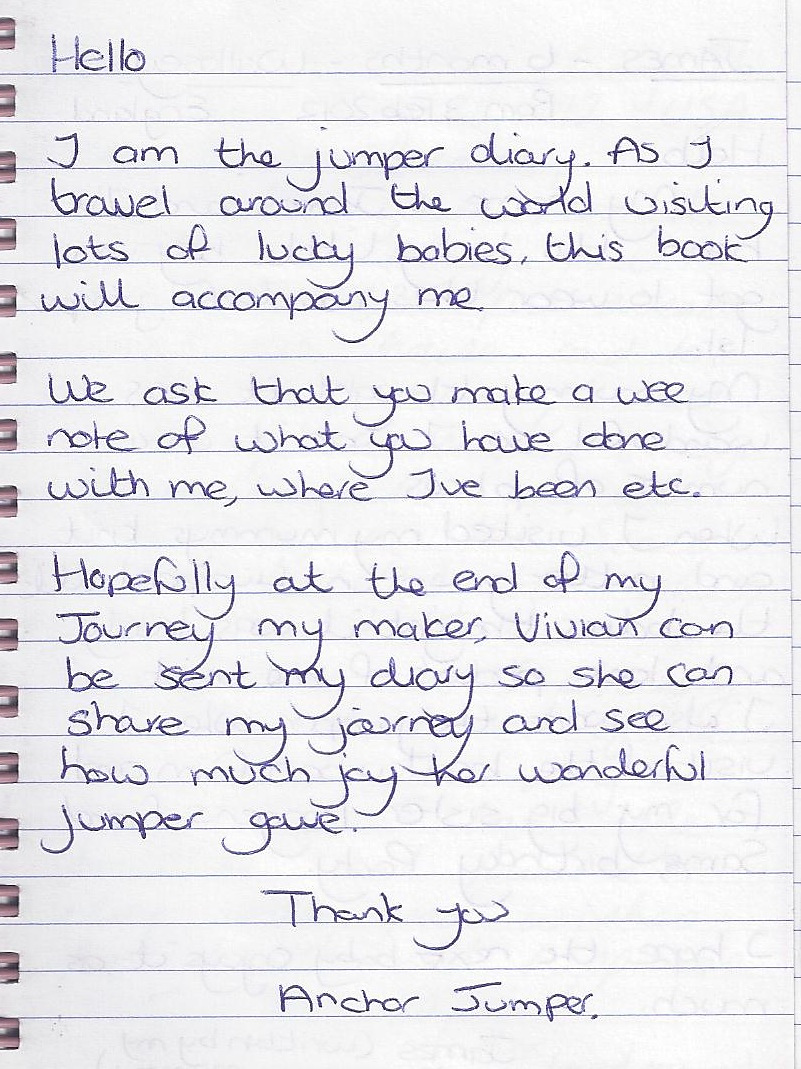 Hello
I am the jumper diary. As I
travel around the world visiting
lots of lucky babies, this book
will accompany me.
We ask that you make a wee
note of what you have done
with me, where I've been etc.
Hopefully at the end of my
Journey my maker, Vivian can
be sent my diary so she can
share my journey and see
how much joy her wonderful
jumper gave.
Thank you
Anchor Jumper.